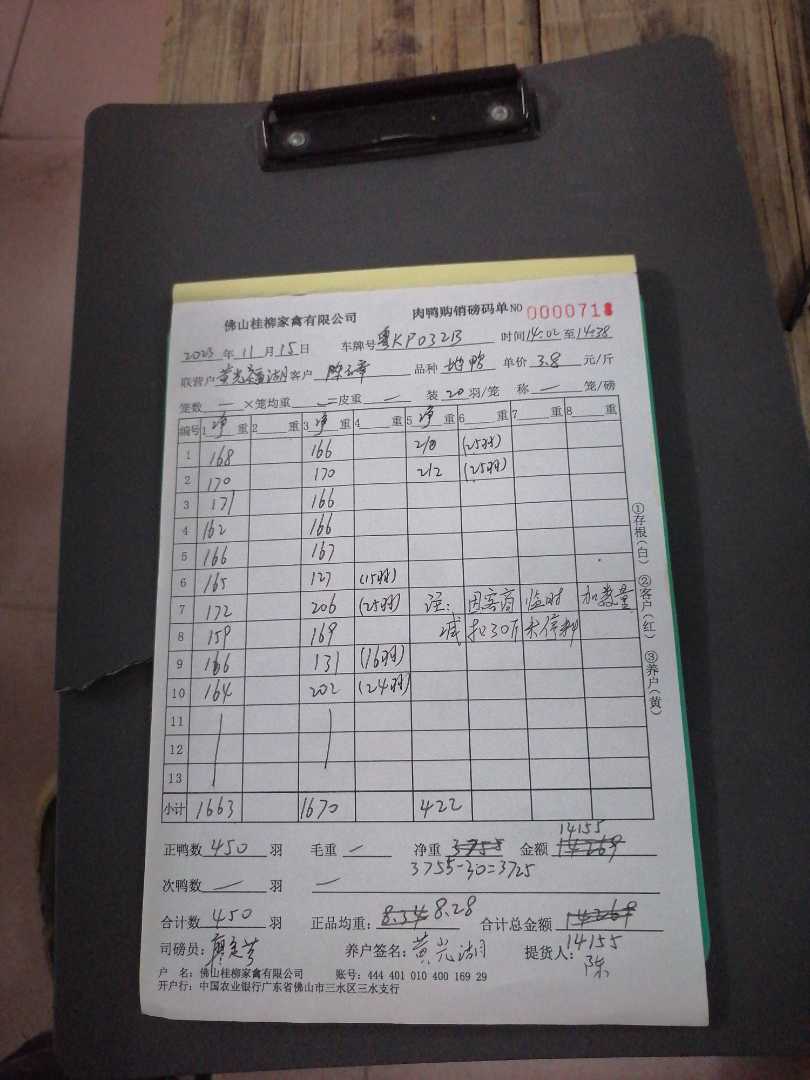 佛山桂柳家禽有限公司 肉鸭购销磅码单 NO 0000718
2023年11月15日 车牌号 粤KP032B 时间14:02至14:38
联营户 黄光 湖 客户 陈 章 品种 鸭 单价 3.8 元/斤
笼数 — ×笼均重 — =皮重 — 装 20 羽/笼 称 — 笼/磅
编号 1 净 重 2 重 3 净 重 4 重 5 净 重 6 重 7 重 8 重
1 168 166 210 (25羽)
2 170 170 212 (25羽)
3 171 166
4 162 166
5 166 167
6 165 127 (15羽)
7 172 206 (25羽) 注: 因客商 临时 加数量
8 159 169 减 扣30斤 未停料
9 166 131 (16羽)
10 164 202 (24羽)
11
12
13
小计 1663 1670 422
14155
正鸭数 450 羽 毛重 — 净重 3755 金额 14269
3755-30=3725
次鸭数 — 羽 —
合计数 450 羽 正品均重: 8.34 8.28 合计总金额 14269
14155
司磅员: 廖 芬 养户签名: 黄光湖 提货人: 陈
户 名: 佛山桂柳家禽有限公司 账号: 444 401 010 400 169 29
开户行: 中国农业银行广东省佛山市三水区三水支行
①存根(白) ②客户(红) ③养户(黄)